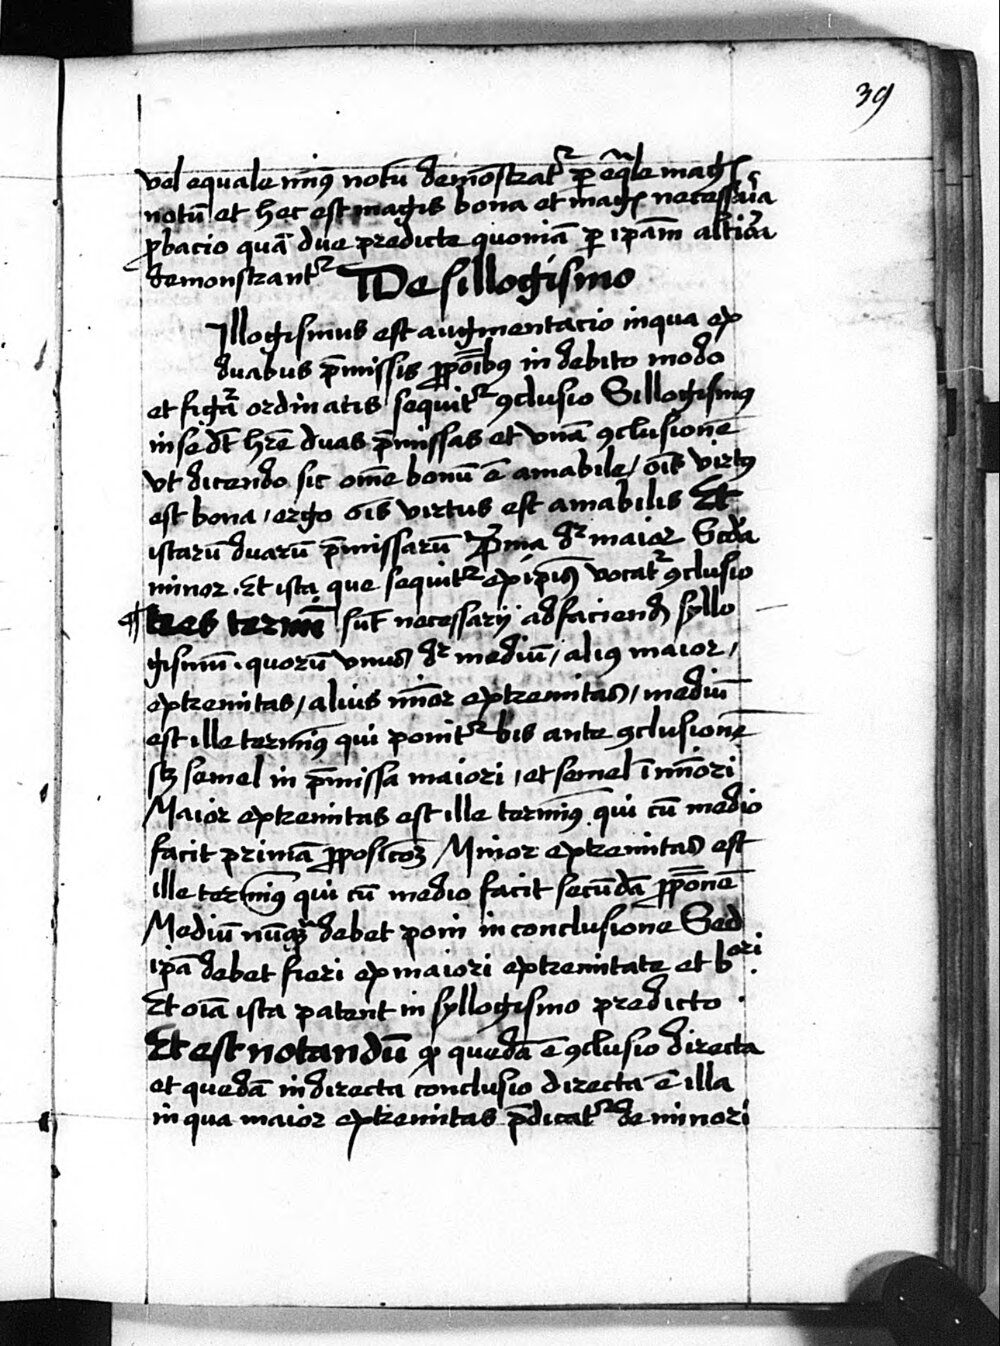 39
vel equale minꝰ notū demōstratᷣ ꝑ eq̄le magꝭ
notū et hec est magis bona et magꝭ necessīa
ꝓbacio quā due predicte quoniā ꝑ ipam
demonstrantᷣ De sillogismo
Illogismus est augmentacio in qua ex
duabus p̄missis ꝓpōibꝰ in debito modo
et figᷓa ordinatis sequitᷣ ꝯclusio Sillogismꝰ
in se dꝫ hr̄e duas p̄missas et vnā ꝯclusionē
vt dicendo sic ōme bonū ē amabile / oīs virtꝰ
est bona / ergo oīs virtus est amabilis Et
istarū duarū p̄missarū pͥma dr̄ maior Scd̄a
minor . Et ista que sequitᷣ ex ip̄is vocatᷣ ꝯclusio
¶ tres termī sūt necessarij ad faciend syllo
gismū . quorū vnus dr̄ mediū / aliꝰ maior /
extremitas / alius mīor extremitas / mediū
est ille termīꝰ qui ponitᷣ bis ante ꝯclusionē
sꝫ semel in p̄missa maiori / et semel ī mīori
Maior extremitas est ille termīꝰ qui cū medio
facit primā ꝓposicōꝫ Minor extremitas est
ille termīꝰ qui cū medio facit secūdā ꝓpōnē
Mediū nūqᷓ debet poni in conclusione Sed
ip̄a debet fieri ex maiori extremitate et mꝰori
Et oīa ista patent in syllogismo predicto .
Et est notandū ꝙ quedā ē ꝯclusio directa
et quedā indirecta conclusio directa ē illa
in qua maior extremitas p̄dicatᷣ de minori